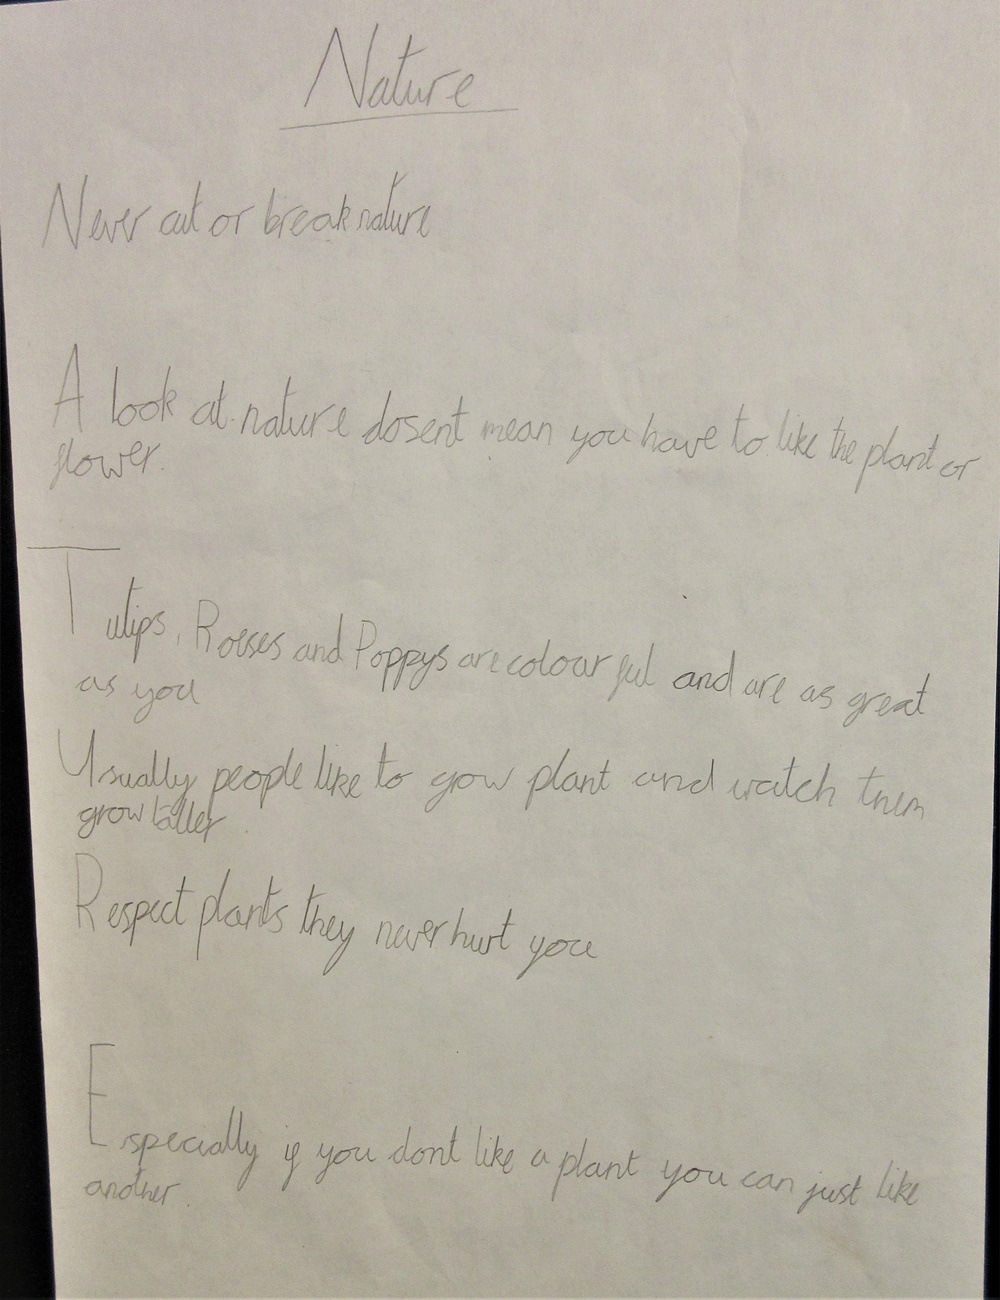 Nature
Never cut or break nature
A look at nature dosent mean you have to like the plant or
flower.
Tulips, Roeses and Poppys are colourful and are as great
as you
Usually people like to grow plant and watch them
grow taller.
Respect plants they never hurt you
Especially if you dont like a plant you can just like
another